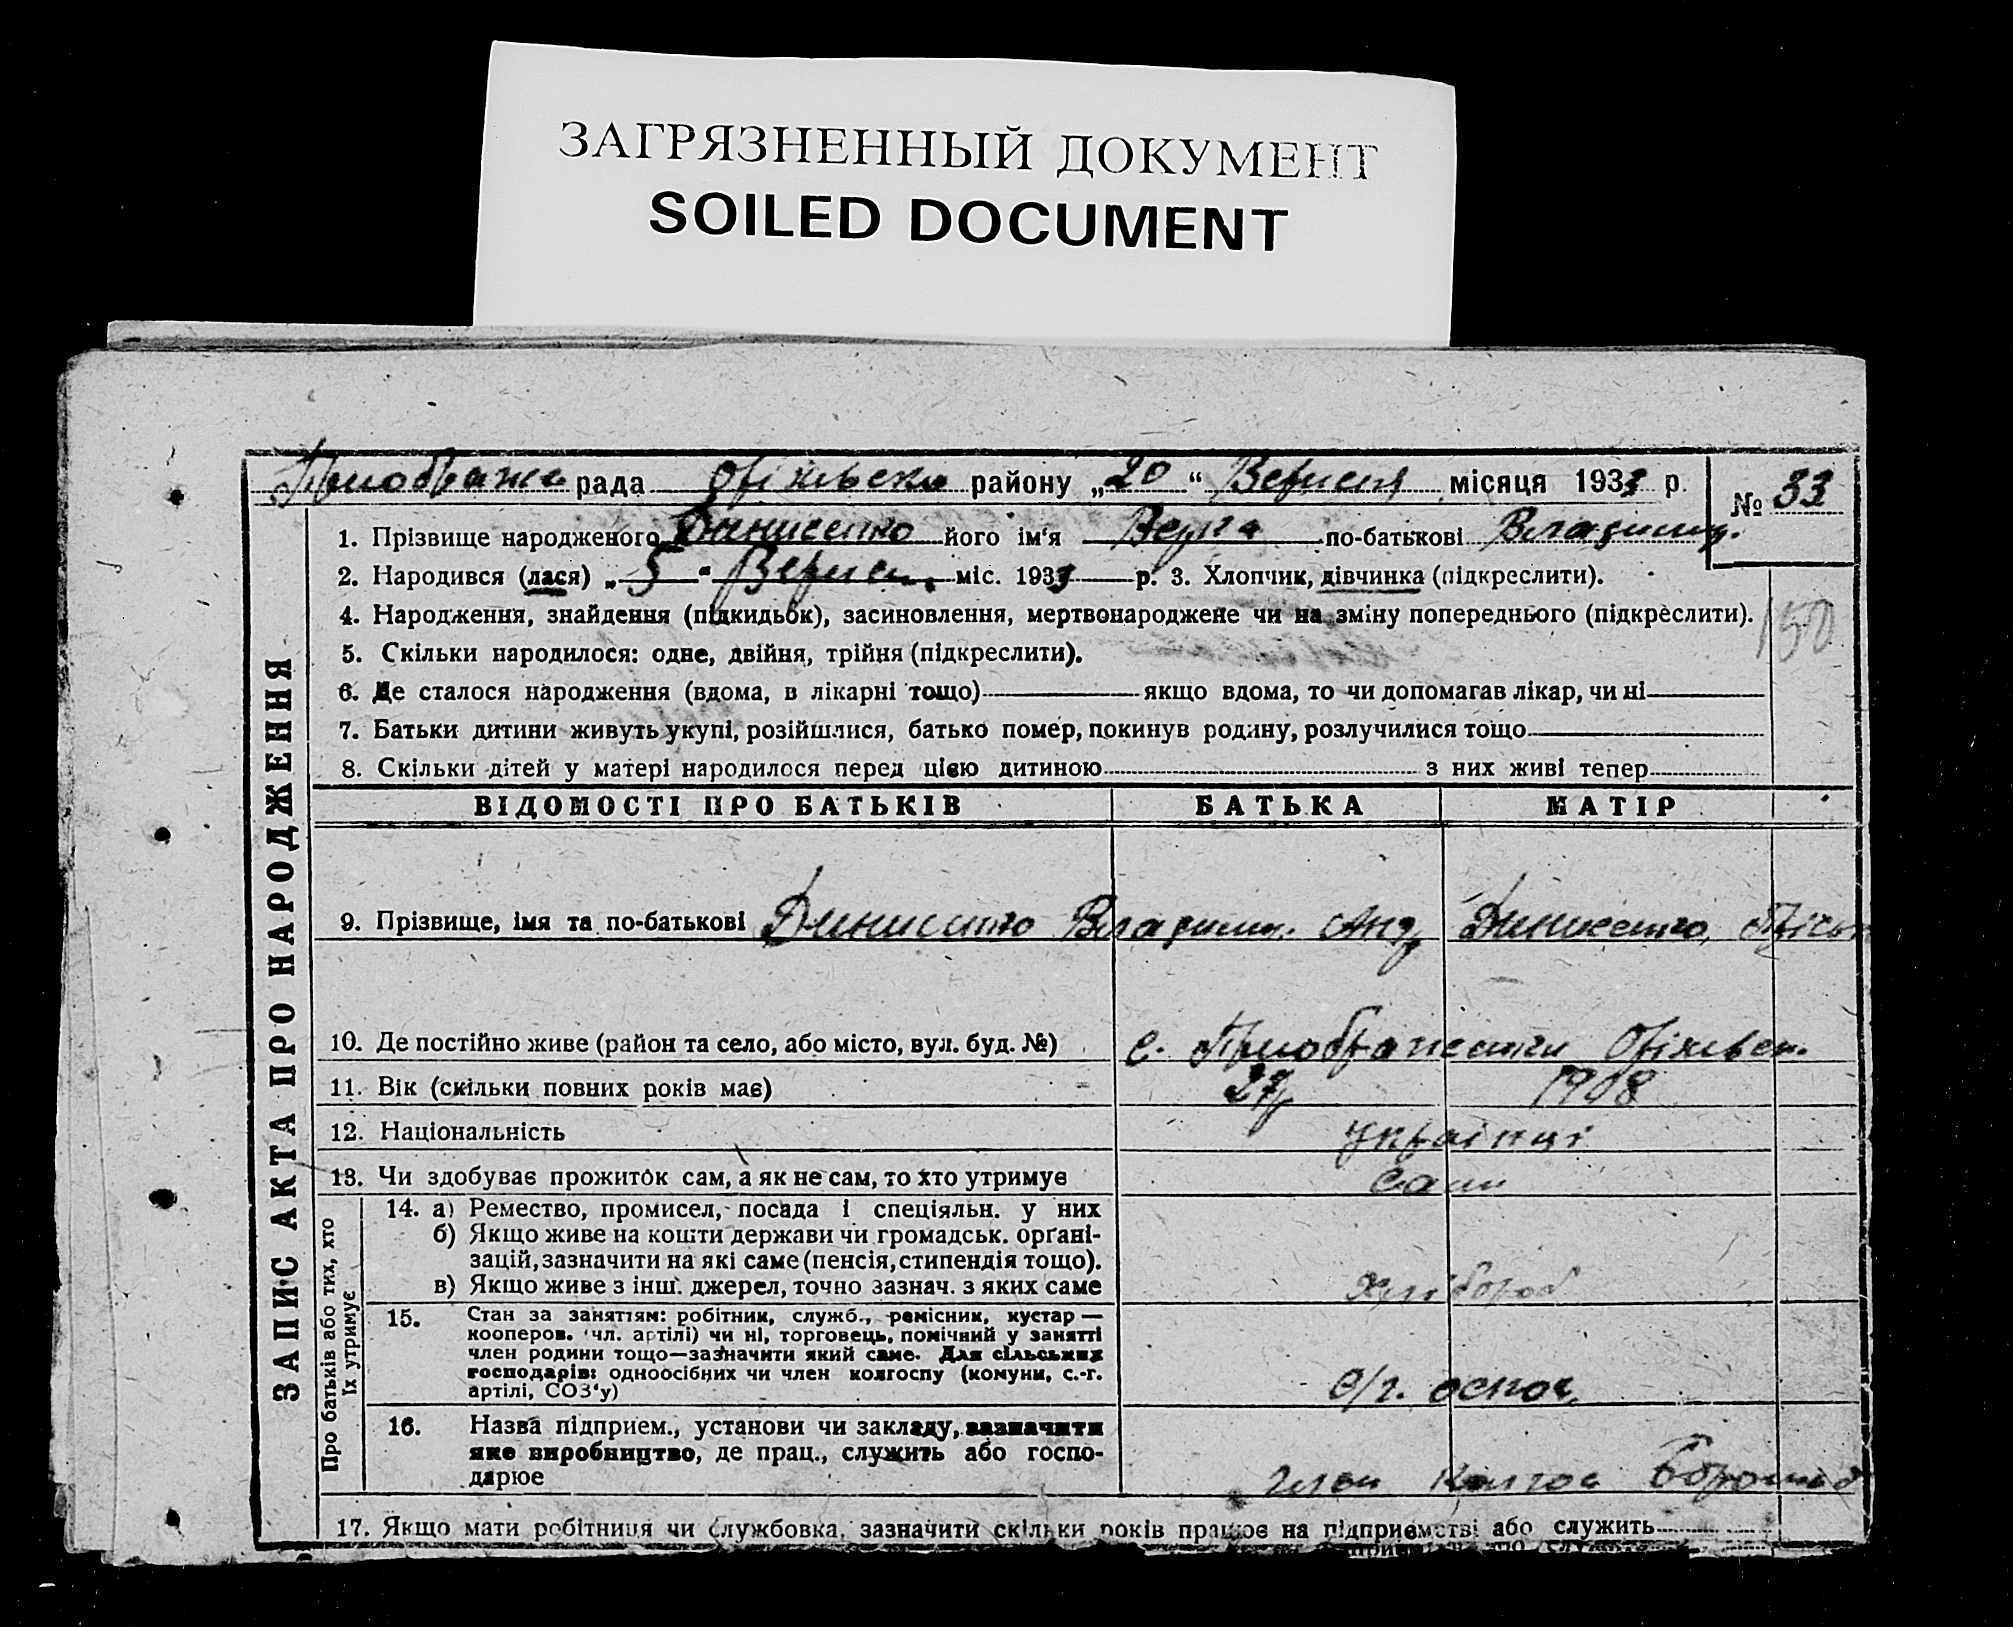 ЗАГРЯЗНЕННЫЙ ДОКУМЕНТ
SOILED DOCUMENT
рада Оріхівськ району „20“ Вересня місяця 1933 р. № 33
1. Прізвище народженого його ім‘я по-батькові Владимир.
2. Народився (лася) „5“ Вересн. міс. 1933 р. 3. Хлопчик, дівчинка (підкреслити).
4. Народження, знайдення (підкидьок), засиновлення, мертвонароджене чи на зміну попереднього (підкреслити).
150
5. Скільки народилося: одне, двійня, трійня (підкреслити).
6. Де сталося народження (вдома, в лікарні тощо) якщо вдома, то чи допомагав лікар, чи ні
7. Батьки дитини живуть укупі, розійшлися, батько помер, покинув родину, розлучилися тощо
8. Скільки дітей у матері народилося перед цією дитиною з них живі тепер
ЗАПИС АКТА ПРО НАРОДЖЕННЯ
ВІДОМОСТІ ПРО БАТЬКІВ БАТЬКА МАТІР
9. Прізвище, імя та по-батькові Владимир. Анд
10. Де постійно живе (район та село, або місто, вул. буд. №) с. Оріхівськ.
11. Вік (скільки повних років має) 27 1908
12. Національність Українці
13. Чи здобуває прожиток сам, а як не сам, то хто утримує сами
Про батьків або тих, хто їх утримує
14. а) Ремество, промисел, посада і спеціяльн. у них
б) Якщо живе на кошти держави чи громадськ. орґані-
зацій, зазначити на які саме (пенсія, стипендія тощо).
в) Якщо живе з інш. джерел, точно зазнач. з яких саме хлібороб
15. Стан за заняттям: робітник, служб., ремісник, кустар —
кооперов. чл. артілі) чи ні, торговець, помічний у занятті
член родини тощо—зазначити який саме. Для сільських
господарів: одноосібних чи член колгоспу (комуни, с.-г.
артілі, СОЗ‘у)
16. Назва підприєм., установи чи закладу, зазначити
яке виробництво, де прац., служить або госпо-
дарює член
17. Якщо мати робітниця чи службовка, зазначити скільки років працює на підприємстві або служить